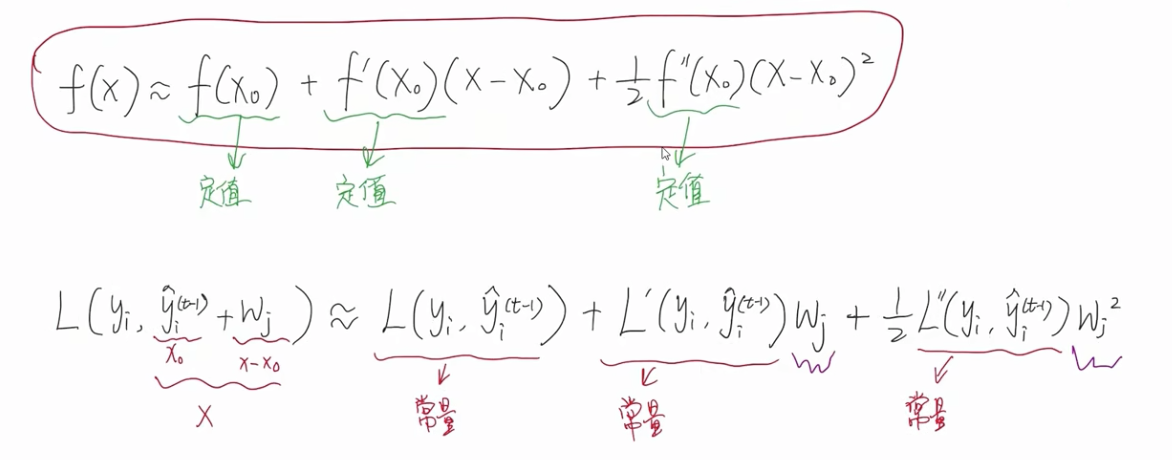 f(x) ≈ f(x₀) + f′(x₀)(x−x₀) + ½f″(x₀)(x−x₀)²
定值 定值 定值
L(yᵢ, ŷᵢ⁽ᵗ⁻¹⁾+wⱼ) ≈ L(yᵢ, ŷᵢ⁽ᵗ⁻¹⁾) + L′(yᵢ, ŷᵢ⁽ᵗ⁻¹⁾)wⱼ + ½L″(yᵢ, ŷᵢ⁽ᵗ⁻¹⁾)wⱼ²
x₀ x−x₀
x 常量 常量 常量